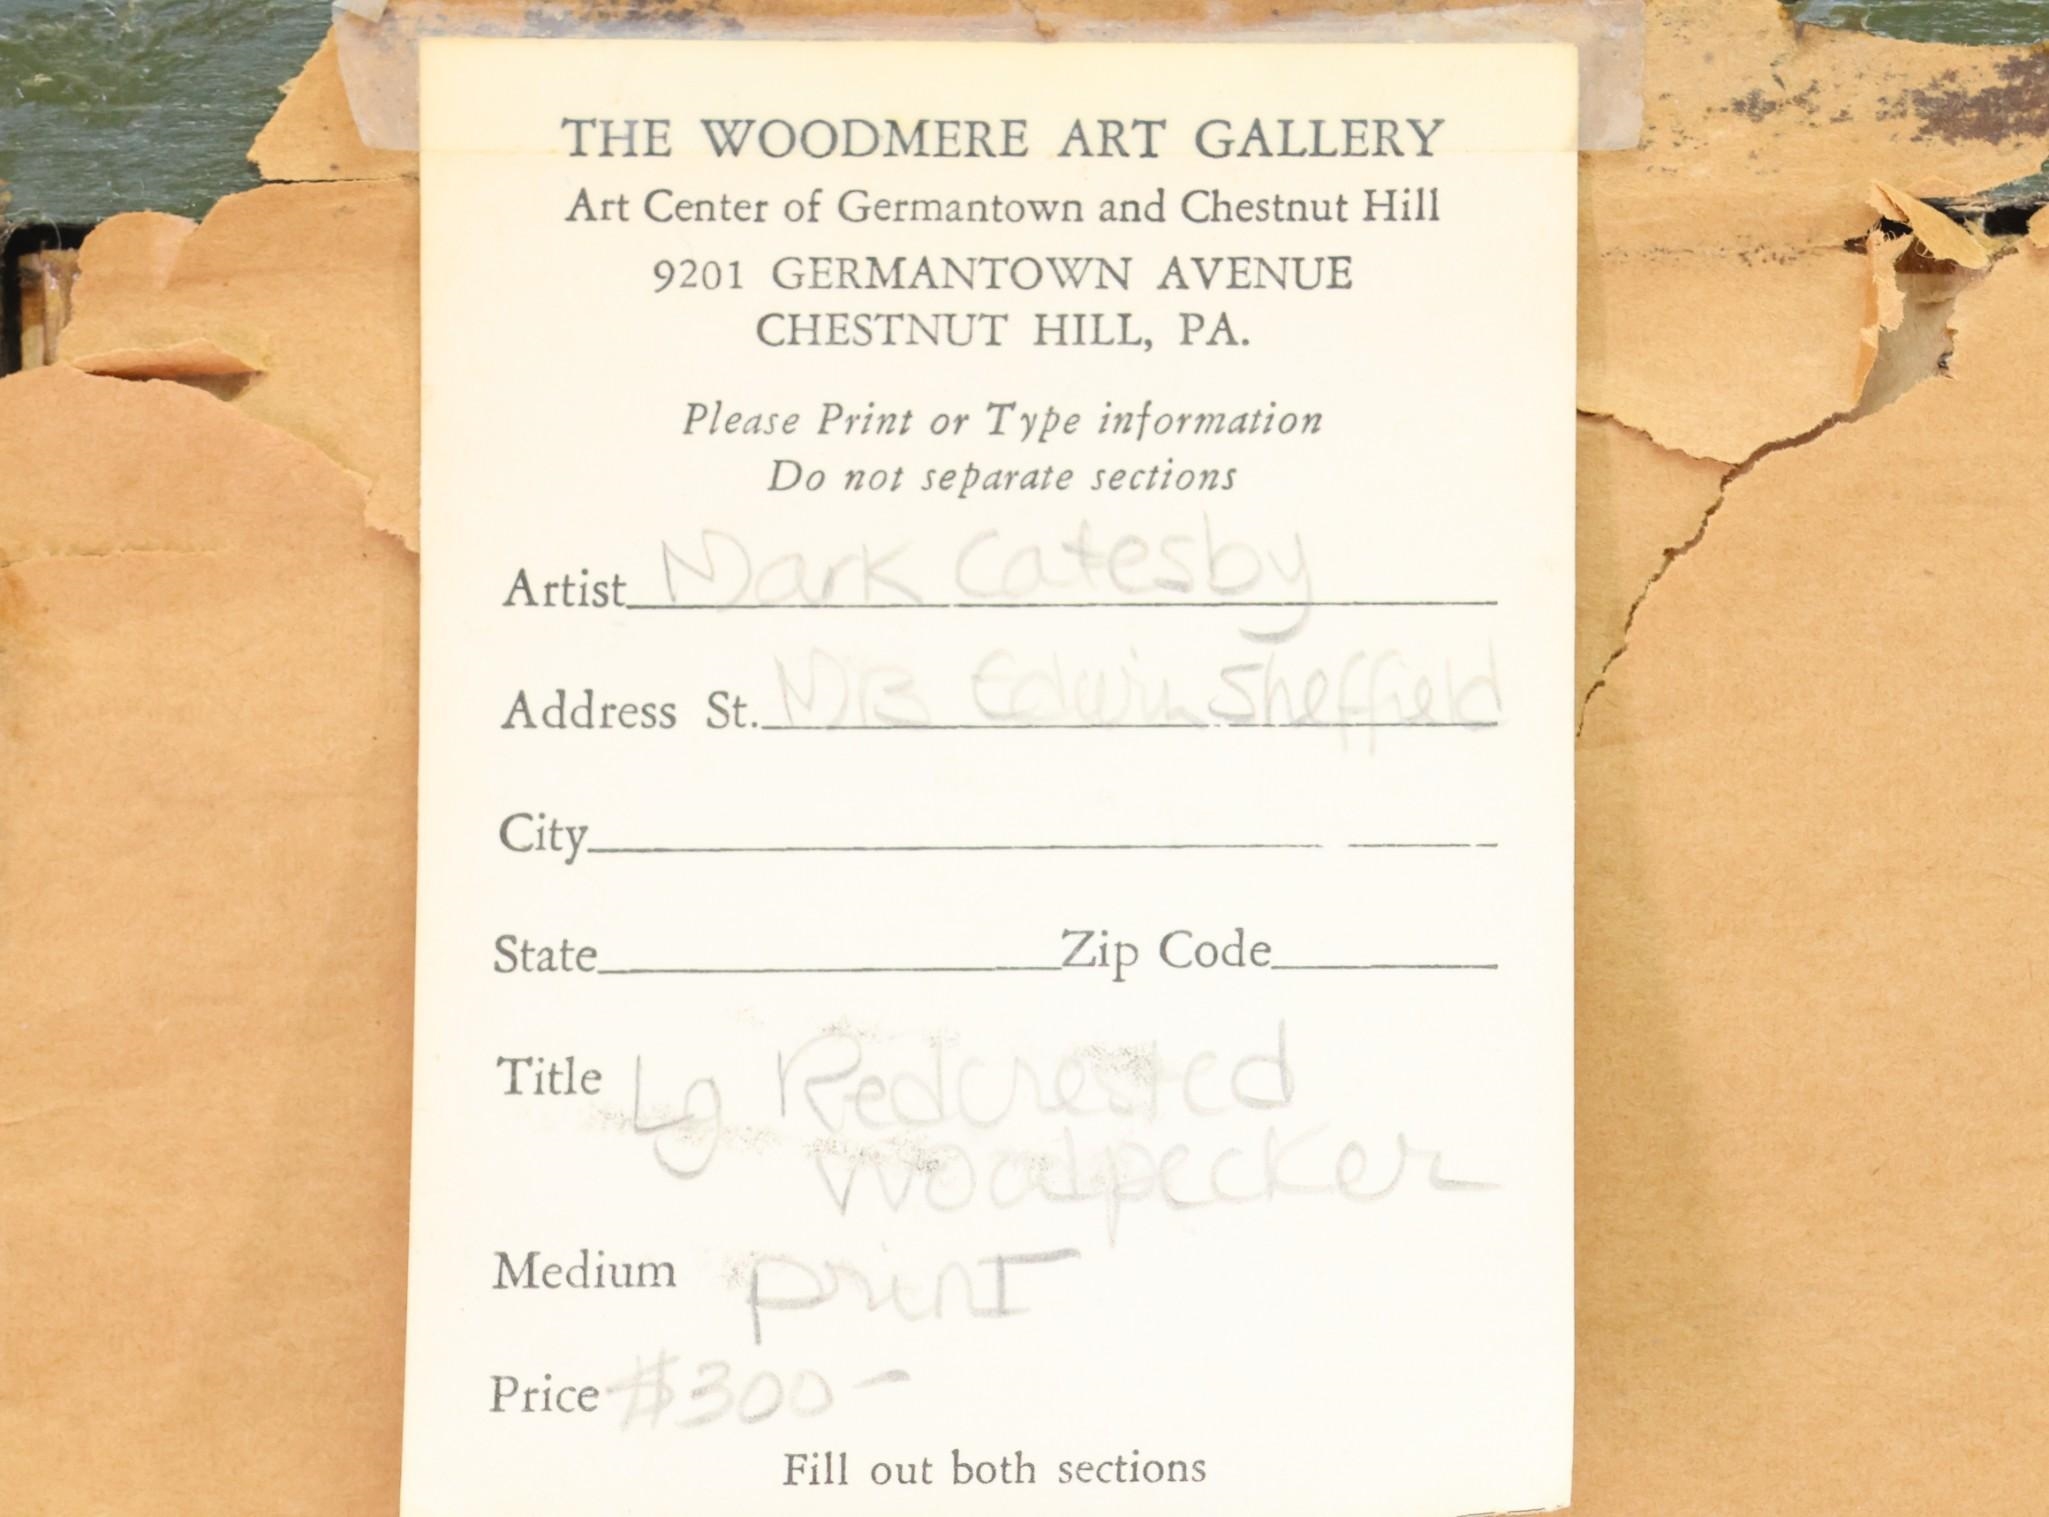 THE WOODMERE ART GALLERY
Art Center of Germantown and Chestnut Hill
9201 GERMANTOWN AVENUE
CHESTNUT HILL, PA.
Please Print or Type information
Do not separate sections
Artist Mark Catesby
Address St. Mrs Edwin Sheffield
City
State Zip Code
Title Lg Redcrested
Woodpecker
Medium print
Price $300-
Fill out both sections